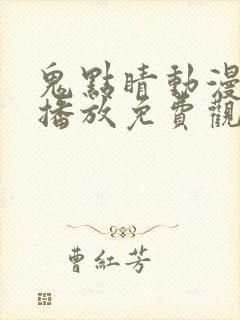 鬼點晴動漫
播放免費觀
曹紅芳